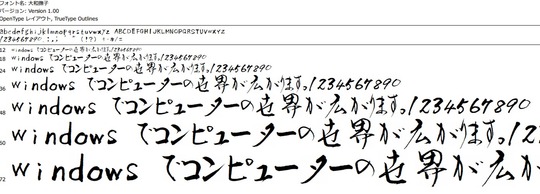 フォント名: 大和撫子
バージョン: Version 1.00
OpenType レイアウト, TrueType Outlines
abcdefghijklmnopqrstuvwxyz ABCDEFGHIJKLMNOPQRSTUVWXYZ
1234567890
12 windows でコンピューターの世界が広がります。1234567890
18 windows でコンピューターの世界が広がります。1234567890
24 windows でコンピューターの世界が広がります。1234567890
36 windows でコンピューターの世界が広がります。1234567890
48 windows でコンピューターの世界が広がります。1234567890
60 windows でコンピューターの世界が広がります。12
72 windows でコンピューターの世界が広が